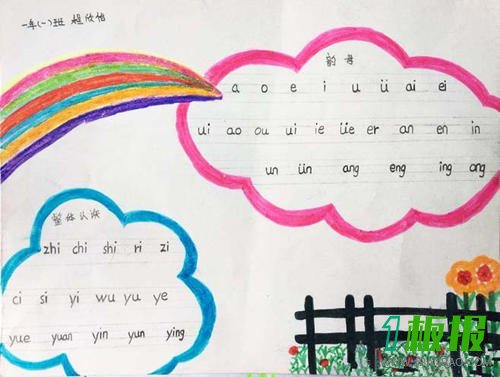 一年(一)班 程欣怡
韵母
a o e i u ü ai ei
ui ao ou ui ie üe er an en in
un ün ang eng ing ong
整体认读
zhi chi shi ri zi
ci si yi wu yu ye
yue yuan yin yun ying
1板报